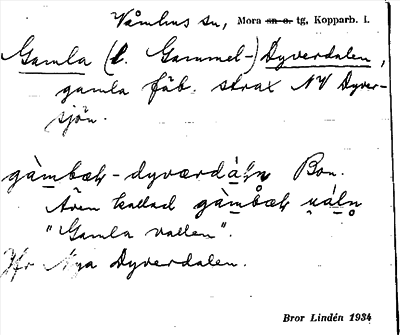 Våmhus sn, Mora sn o. tg, Kopparb. l.
Gamla (l. Gammel-) Dyverdalen,
gamla fäb. strax NV Dyver-
sjön.
Bon.
Även kallad
"Gamla vallen".
Jfr Nya Dyverdalen.
Bror Lindén 1934